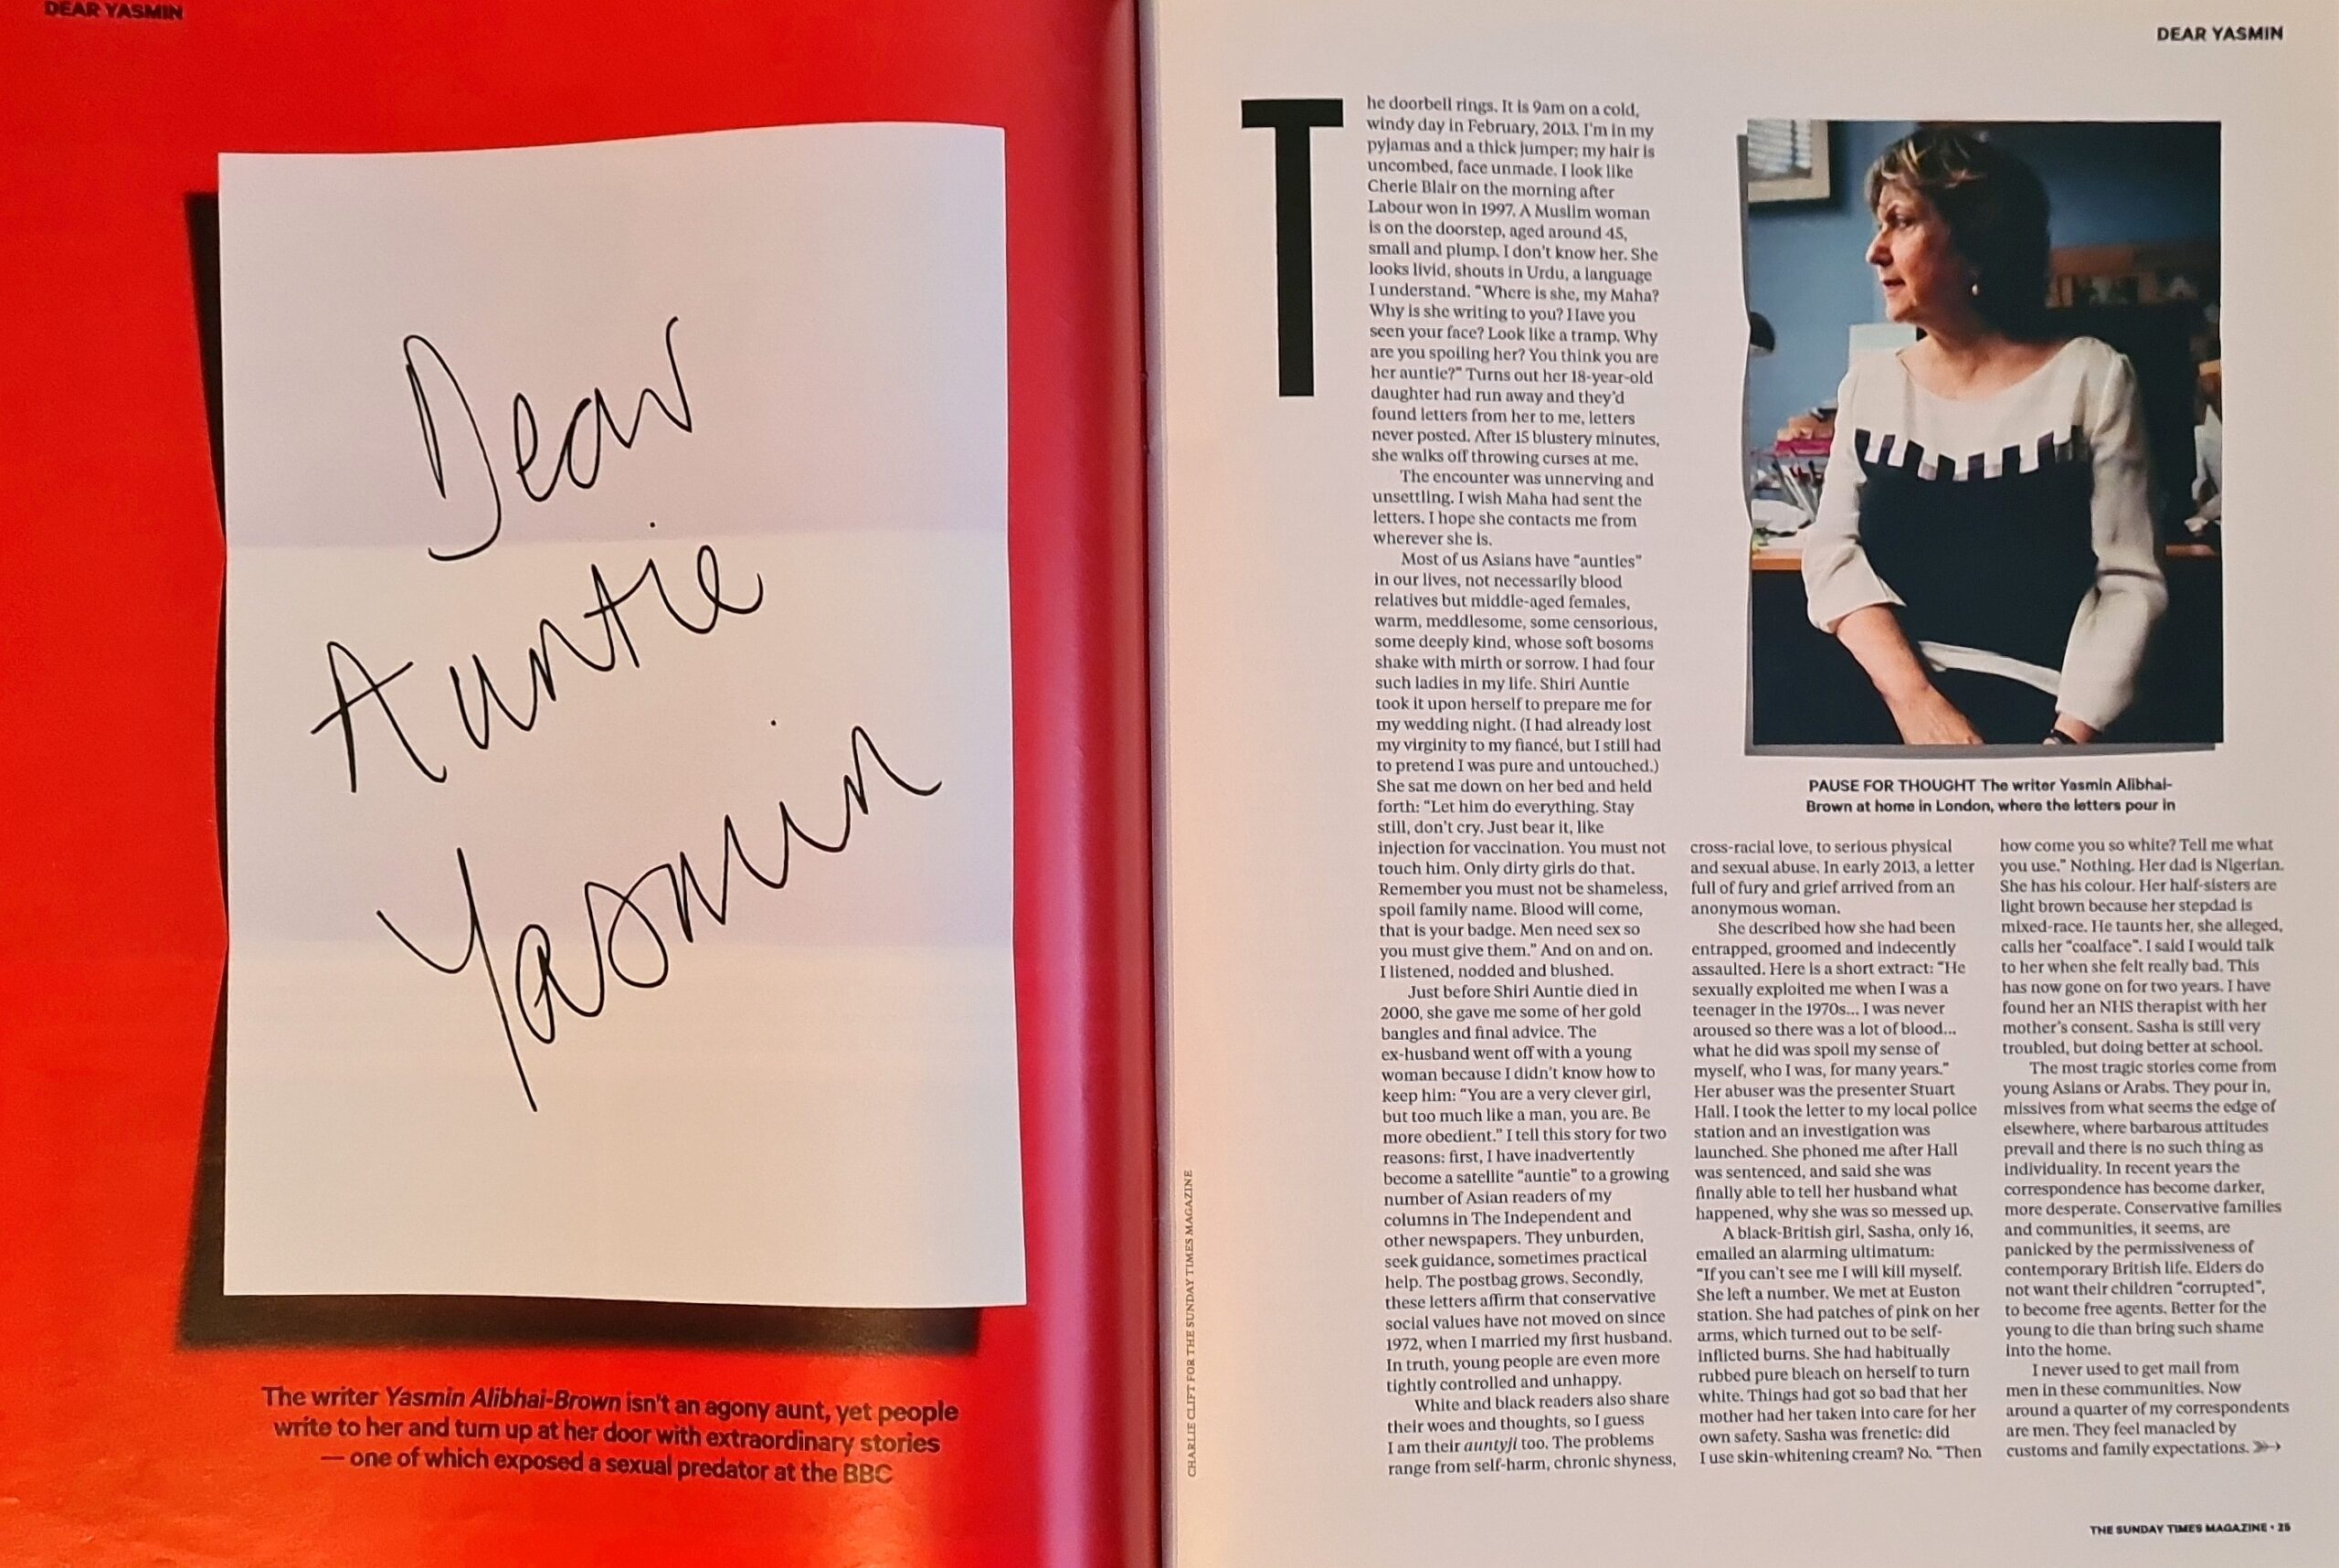 DEAR YASMIN
Dear
Auntie
Yasmin
The writer Yasmin Alibhai-Brown isn't an agony aunt, yet people
write to her and turn up at her door with extraordinary stories
— one of which exposed a sexual predator at the BBC
DEAR YASMIN
CHARLIE CLIFT FOR THE SUNDAY TIMES MAGAZINE
The doorbell rings. It is 9am on a cold,
windy day in February, 2013. I'm in my
pyjamas and a thick jumper; my hair is
uncombed, face unmade. I look like
Cherie Blair on the morning after
Labour won in 1997. A Muslim woman
is on the doorstep, aged around 45,
small and plump. I don't know her. She
looks livid, shouts in Urdu, a language
I understand. "Where is she, my Maha?
Why is she writing to you? Have you
seen your face? Look like a tramp. Why
are you spoiling her? You think you are
her auntie?" Turns out her 18-year-old
daughter had run away and they'd
found letters from her to me, letters
never posted. After 15 blustery minutes,
she walks off throwing curses at me.
The encounter was unnerving and
unsettling. I wish Maha had sent the
letters. I hope she contacts me from
wherever she is.
Most of us Asians have "aunties"
in our lives, not necessarily blood
relatives but middle-aged females,
warm, meddlesome, some censorious,
some deeply kind, whose soft bosoms
shake with mirth or sorrow. I had four
such ladies in my life. Shiri Auntie
took it upon herself to prepare me for
my wedding night. (I had already lost
my virginity to my fiancé, but I still had
to pretend I was pure and untouched.)
She sat me down on her bed and held
forth: "Let him do everything. Stay
still, don't cry. Just bear it, like
injection for vaccination. You must not
touch him. Only dirty girls do that.
Remember you must not be shameless,
spoil family name. Blood will come,
that is your badge. Men need sex so
you must give them." And on and on.
I listened, nodded and blushed.
Just before Shiri Auntie died in
2000, she gave me some of her gold
bangles and final advice. The
ex-husband went off with a young
woman because I didn't know how to
keep him: "You are a very clever girl,
but too much like a man, you are. Be
more obedient." I tell this story for two
reasons: first, I have inadvertently
become a satellite "auntie" to a growing
number of Asian readers of my
columns in The Independent and
other newspapers. They unburden,
seek guidance, sometimes practical
help. The postbag grows. Secondly,
these letters affirm that conservative
social values have not moved on since
1972, when I married my first husband.
In truth, young people are even more
tightly controlled and unhappy.
White and black readers also share
their woes and thoughts, so I guess
I am their auntyji too. The problems
range from self-harm, chronic shyness,
PAUSE FOR THOUGHT The writer Yasmin Alibhai-
Brown at home in London, where the letters pour in
cross-racial love, to serious physical
and sexual abuse. In early 2013, a letter
full of fury and grief arrived from an
anonymous woman.
She described how she had been
entrapped, groomed and indecently
assaulted. Here is a short extract: "He
sexually exploited me when I was a
teenager in the 1970s... I was never
aroused so there was a lot of blood...
what he did was spoil my sense of
myself, who I was, for many years."
Her abuser was the presenter Stuart
Hall. I took the letter to my local police
station and an investigation was
launched. She phoned me after Hall
was sentenced, and said she was
finally able to tell her husband what
happened, why she was so messed up.
A black-British girl, Sasha, only 16,
emailed an alarming ultimatum:
"If you can't see me I will kill myself.
She left a number. We met at Euston
station. She had patches of pink on her
arms, which turned out to be self-
inflicted burns. She had habitually
rubbed pure bleach on herself to turn
white. Things had got so bad that her
mother had her taken into care for her
own safety. Sasha was frenetic: did
I use skin-whitening cream? No. "Then
how come you so white? Tell me what
you use." Nothing. Her dad is Nigerian.
She has his colour. Her half-sisters are
light brown because her stepdad is
mixed-race. He taunts her, she alleged,
calls her "coalface". I said I would talk
to her when she felt really bad. This
has now gone on for two years. I have
found her an NHS therapist with her
mother's consent. Sasha is still very
troubled, but doing better at school.
The most tragic stories come from
young Asians or Arabs. They pour in,
missives from what seems the edge of
elsewhere, where barbarous attitudes
prevail and there is no such thing as
individuality. In recent years the
correspondence has become darker,
more desperate. Conservative families
and communities, it seems, are
panicked by the permissiveness of
contemporary British life. Elders do
not want their children "corrupted",
to become free agents. Better for the
young to die than bring such shame
into the home.
I never used to get mail from
men in these communities. Now
around a quarter of my correspondents
are men. They feel manacled by
customs and family expectations.
THE SUNDAY TIMES MAGAZINE • 25